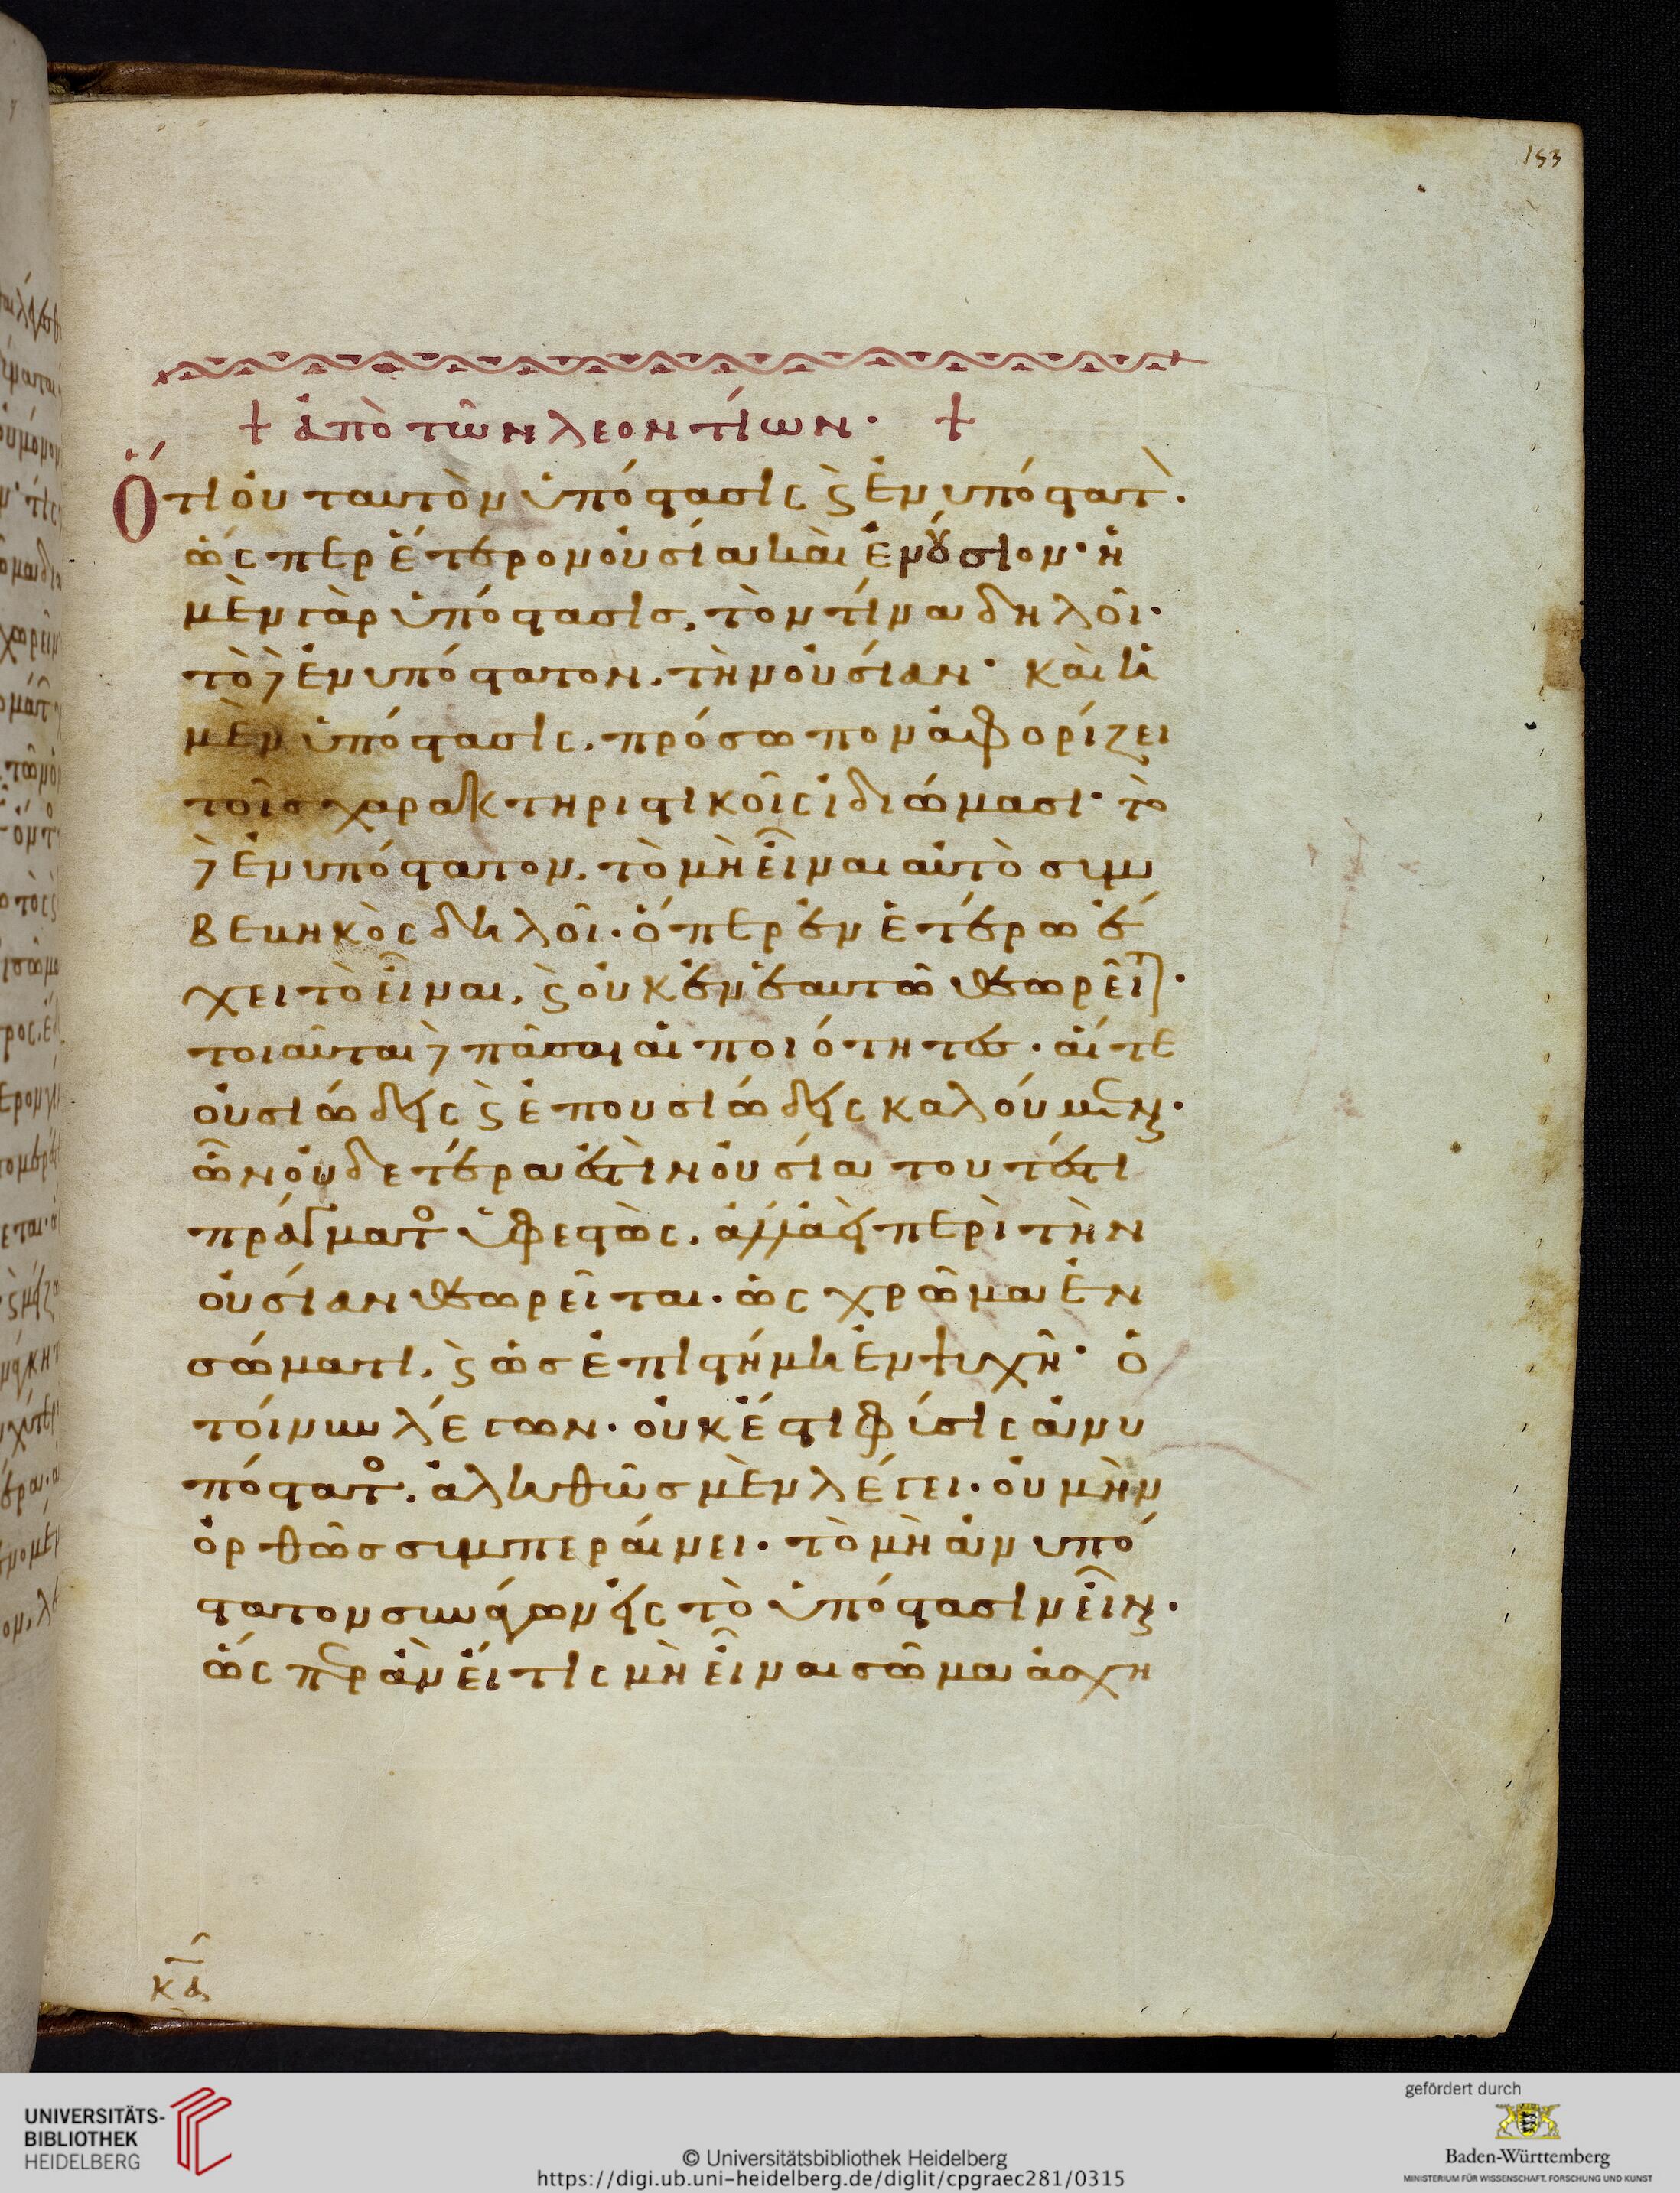 153
+ ἀπὸ τῶν λεοντίων· +
Ὅτι οὐ ταυτὸν ὑπόστασις ϗ ἐνυπόστατ̀.
ὥσπερ ἕτερον οὐσία καὶ ἐνούσιον· ἡ
μὲν γὰρ ὑπόστασις, τὸν τίνα δηλοῖ·
τὸ δὲ ἐνυπόστατον, τὴν οὐσίαν· καὶ ἡ
μὲν ὑπόστασις, πρόσωπον ἀφορίζει
τοῖς χαρακτηριστικοῖς ἰδιώμασι· τὸ
δὲ ἐνυπόστατον, τὸ μὴ εἶναι αὐτὸ συμ
βεβηκὸς δηλοῖ· ὅπερ ἐν ἑτέρω ἔ
χει τὸ εἶναι, ϗ οὐκ ἐν ἑαυτῶ θεωρεῖται·
τοιαῦται δὲ πᾶσαι αἱ ποιότητες· αἵ τε
οὐσιώδεις ϗ ἐπουσιώδεις καλούμεναι·
ὧν οὐδετέρα ἐστὶν οὐσία τουτέστι
πρᾶγμα τὸ ὑφεστὼς, ἀλλ' ἀεὶ περὶ τὴν
οὐσίαν θεωρεῖται· ὡς χρῶμα ἐν
σώματι, ϗ ὡς ἐπιστήμη ἐν ψυχῆ· ὁ
τοίνυν λέγων· οὐκ ἔστι φύσις ἀνυ
πόστατος, ἀληθῶς μὲν λέγει· οὐ μὴν
ὀρθῶς συμπεραίνει· τὸ μὴ ἀνυπό
στατον συνάγων εἰς τὸ ὑπόστασιν εἶναι·
ὥσπερ ἂν εἴ τις μὴ εἶναι σῶμα ἀσχη
κδ
UNIVERSITÄTS-
BIBLIOTHEK
HEIDELBERG
© Universitätsbibliothek Heidelberg
https://digi.ub.uni-heidelberg.de/diglit/cpgraec281/0315
gefördert durch
Baden-Württemberg
MINISTERIUM FÜR WISSENSCHAFT, FORSCHUNG UND KUNST